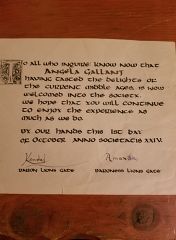 To all who inquire know now that
Angela Gallant
having tasted the delights of
the current middle ages, is now
welcomed into the society.
We hope that you will continue
to enjoy the experience as
much as we do.
By our hands this 1st day
of October Anno Societatis XXIV.
Kendal Amanda
Baron Lions Gate Baroness Lions Gate